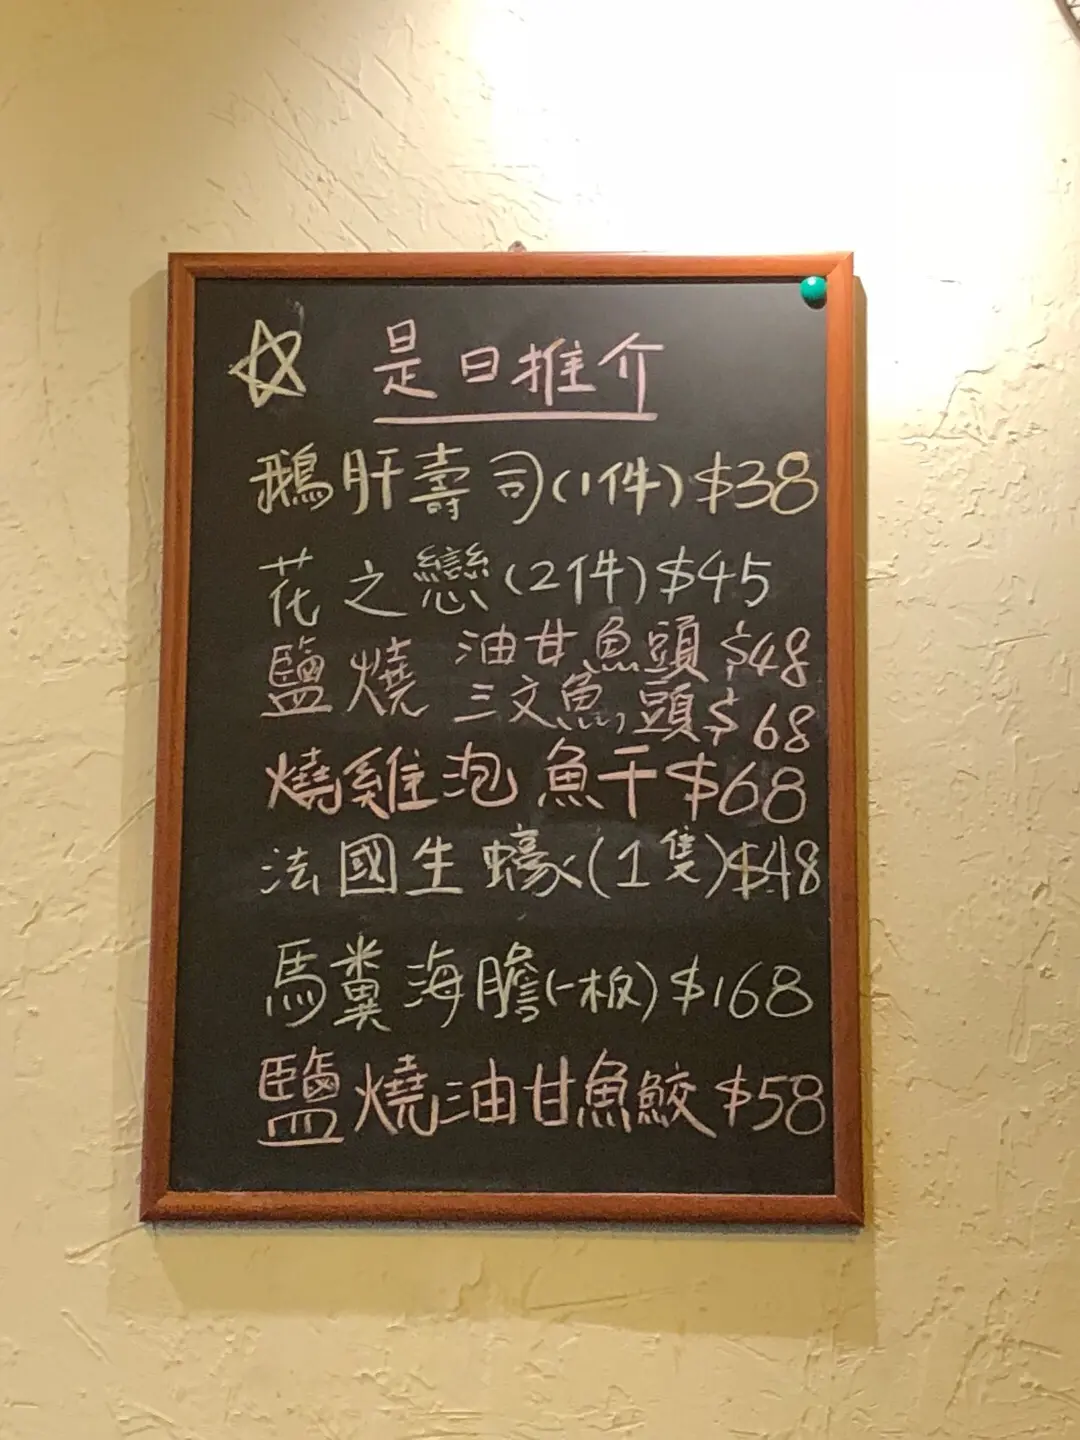 是日推介
鵝肝壽司(1件)$38
花之戀(2件)$45
鹽燒 油甘魚頭$48
三文魚頭$68
燒雞泡魚干$68
法國生蠔(1隻)$48
馬糞海膽(一板)$168
鹽燒油甘魚鮫$58